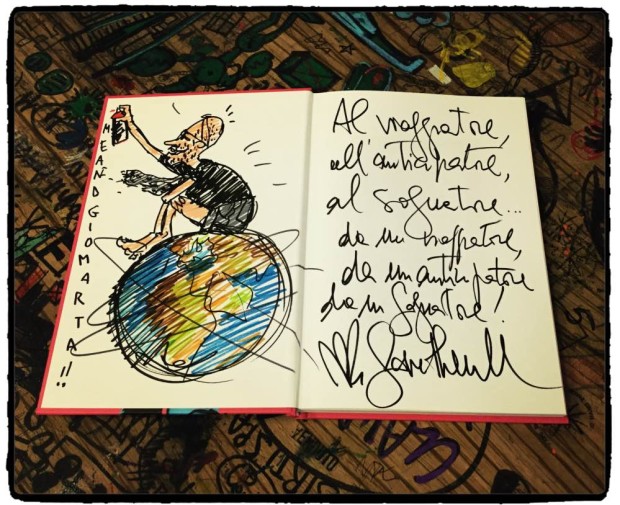 MEANDGIOMARTA!!
Al viaggiatore,
all'anticipatore,
al sognatore...
da un viaggiatore,
da un anticipatore
da un sognatore!